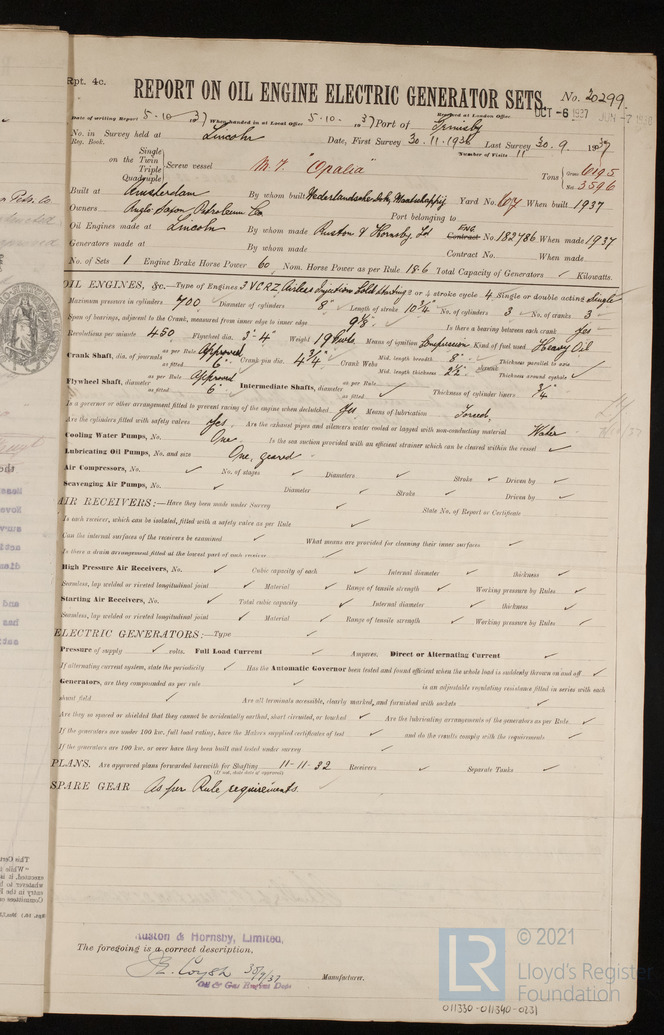 Rpt. 4c.
REPORT ON OIL ENGINE ELECTRIC GENERATOR SETS.
No. 20299.
Received at London Office
OCT -6 1937
Date of writing Report 5-10-1937 When handed in at Local Office 5-10-1937 Port of Grimsby
No. in Survey held at Lincoln Date, First Survey 30.11.1936 Last Survey 30.9.1937
Reg. Book. Number of Visits 11
Single
on the Twin
Triple
Quadruple
Screw vessel M.V. "Opalia" Tons Gross 6195
Net 3596
Built at Amsterdam By whom built Nederlandsche Dok Maatschappij Yard No. 267 When built 1937
Owners Anglo Saxon Petroleum Co Port belonging to
Oil Engines made at Lincoln By whom made Ruston & Hornsby Ld Contract ENG No. 182786 When made 1937
Generators made at By whom made Contract No. When made
No. of Sets 1 Engine Brake Horse Power 60 Nom. Horse Power as per Rule 18.6 Total Capacity of Generators Kilowatts.
OIL ENGINES, &c.—Type of Engines 3 VCRZ Airless Injection Cold Starting 2 or 4 stroke cycle 4 Single or double acting Single
Maximum pressure in cylinders 700 Diameter of cylinders 8" Length of stroke 10 3/4" No. of cylinders 3 No. of cranks 3
Span of bearings, adjacent to the Crank, measured from inner edge to inner edge 9 1/2" Is there a bearing between each crank Yes
Revolutions per minute 450 Flywheel dia. 3'-4" Weight 19 cwts Means of ignition Compression Kind of fuel used Heavy Oil
Crank Shaft, dia. of journals as per Rule Approved as fitted 6" Crank pin dia. 4 3/4" Crank Webs Mid. length breadth 8" Mid. length thickness 2 1/2" shrunk Thickness parallel to axis Thickness around eyehole
Flywheel Shaft, diameter as per Rule Approved as fitted 6" Intermediate Shafts, diameter as per Rule as fitted Thickness of cylinder liners 3/4"
Is a governor or other arrangement fitted to prevent racing of the engine when declutched Yes Means of lubrication Forced
Are the cylinders fitted with safety valves Yes Are the exhaust pipes and silencers water cooled or lagged with non-conducting material Water
Cooling Water Pumps, No. One Is the sea suction provided with an efficient strainer which can be cleared within the vessel ✓
Lubricating Oil Pumps, No. and size One, geared
Air Compressors, No. ✓ No. of stages ✓ Diameters ✓ Stroke ✓ Driven by ✓
Scavenging Air Pumps, No. ✓ Diameter ✓ Stroke ✓ Driven by ✓
AIR RECEIVERS:—Have they been made under Survey ✓ State No. of Report or Certificate
Is each receiver, which can be isolated, fitted with a safety valve as per Rule ✓
Can the internal surfaces of the receivers be examined ✓ What means are provided for cleaning their inner surfaces ✓
Is there a drain arrangement fitted at the lowest part of each receiver ✓
High Pressure Air Receivers, No. ✓ Cubic capacity of each ✓ Internal diameter ✓ thickness ✓
Seamless, lap welded or riveted longitudinal joint ✓ Material ✓ Range of tensile strength ✓ Working pressure by Rules ✓
Starting Air Receivers, No. ✓ Total cubic capacity ✓ Internal diameter ✓ thickness ✓
Seamless, lap welded or riveted longitudinal joint ✓ Material ✓ Range of tensile strength ✓ Working pressure by Rules ✓
ELECTRIC GENERATORS:—Type ✓
Pressure of supply ✓ volts. Full Load Current ✓ Amperes. Direct or Alternating Current ✓
If alternating current system, state the periodicity ✓ Has the Automatic Governor been tested and found efficient when the whole load is suddenly thrown on and off ✓
Generators, are they compounded as per rule ✓ is an adjustable regulating resistance fitted in series with each
shunt field ✓ Are all terminals accessible, clearly marked, and furnished with sockets ✓
Are they so spaced or shielded that they cannot be accidentally earthed, short circuited, or touched ✓ Are the lubricating arrangements of the generators as per Rule ✓
If the generators are under 100 kw. full load rating, have the Makers supplied certificates of test ✓ and do the results comply with the requirements ✓
If the generators are 100 kw. or over have they been built and tested under survey ✓
PLANS. Are approved plans forwarded herewith for Shafting 11-11-32 Receivers ✓ Separate Tanks ✓
(If not, state date of approval)
SPARE GEAR As per Rule requirements.
Ruston & Hornsby, Limited,
The foregoing is a correct description,
Manufacturer.
Oil & Gas Engine Dept
© 2021
LR
Lloyd's Register
Foundation
011330-011340-0231